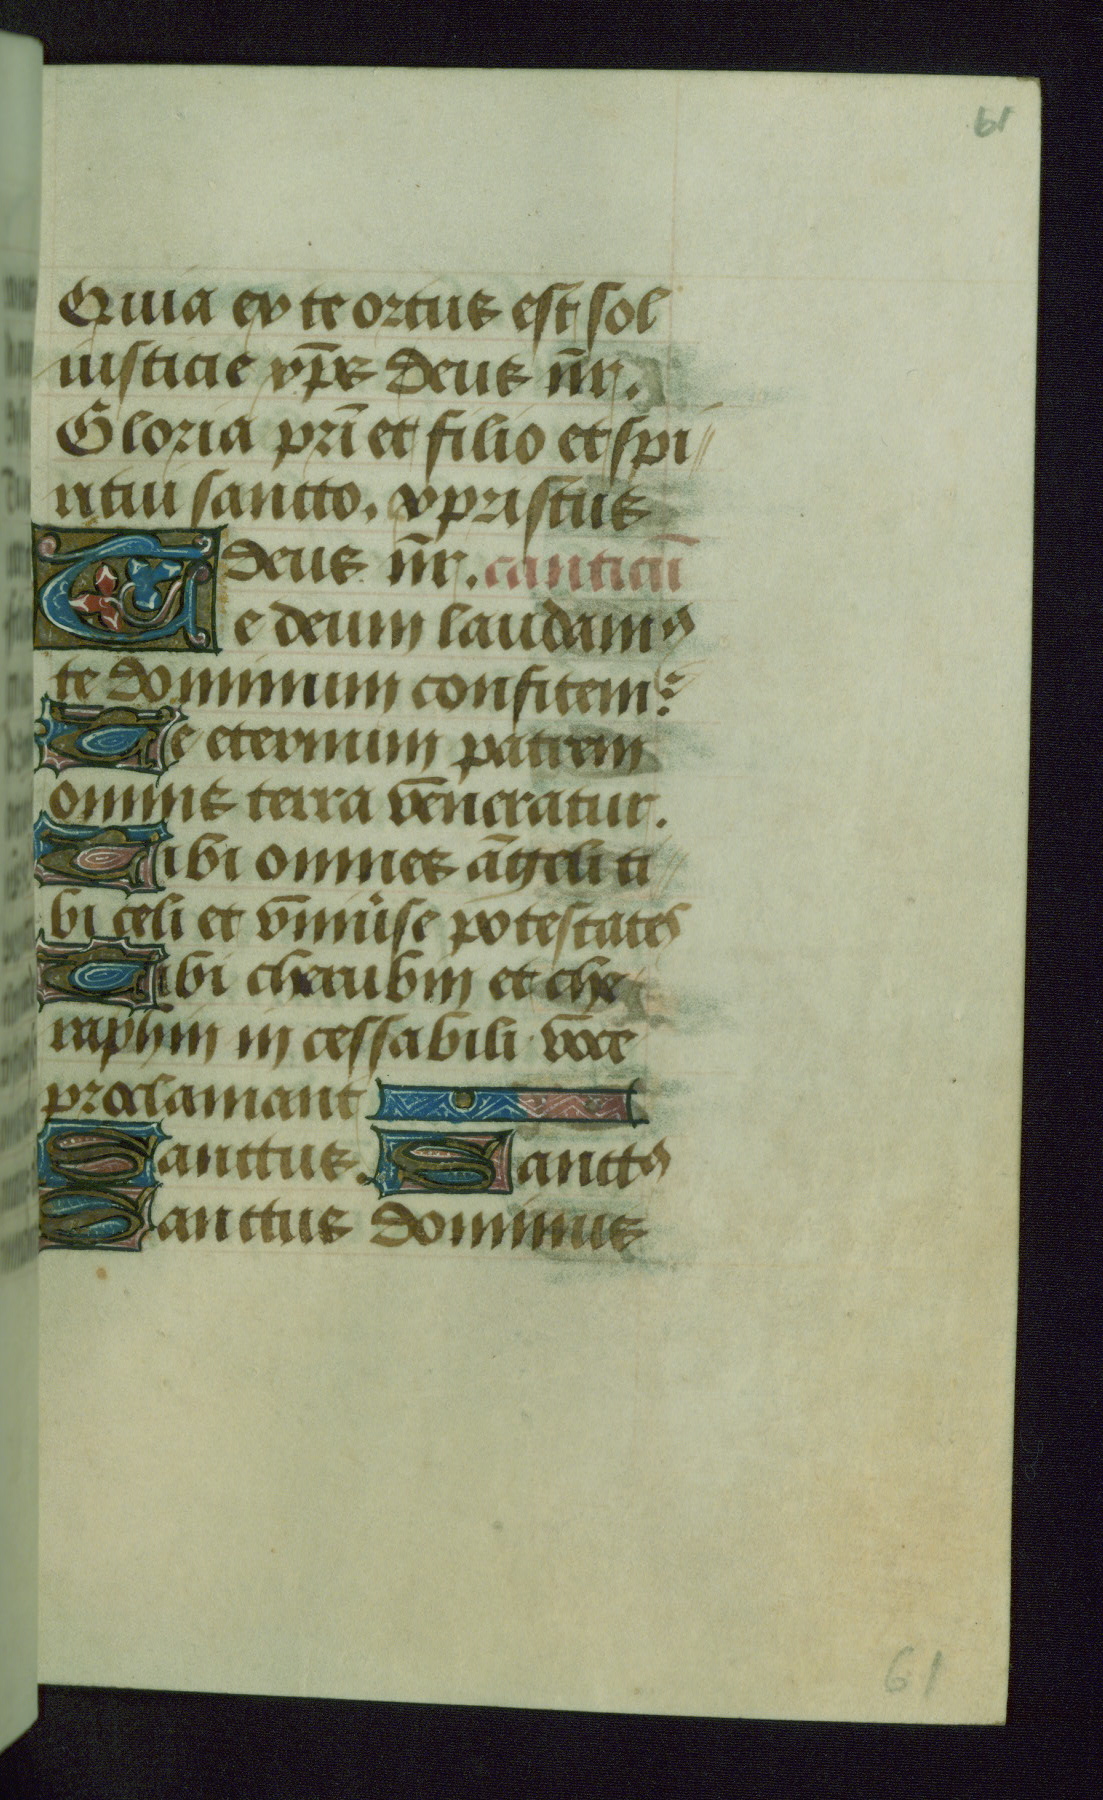 61
Quia ex te ortus est sol
iusticie xp̄s deus nr̄.
Gloria pr̄i et filio et spi//
ritui sancto. xpristus
deus nr̄. canticū
Te deum laudamꝰ
te dominum confitem᷑
Te eternum patrem
omnis terra vēneratur.
Tibi omnes āgeli ti//
bi celi et vn̄iuͥse potestates
Tibi cherubin et che
raphin in cessabili voce
proclamant
Sanctus. Sanctꝰ
Sanctus dominus
61